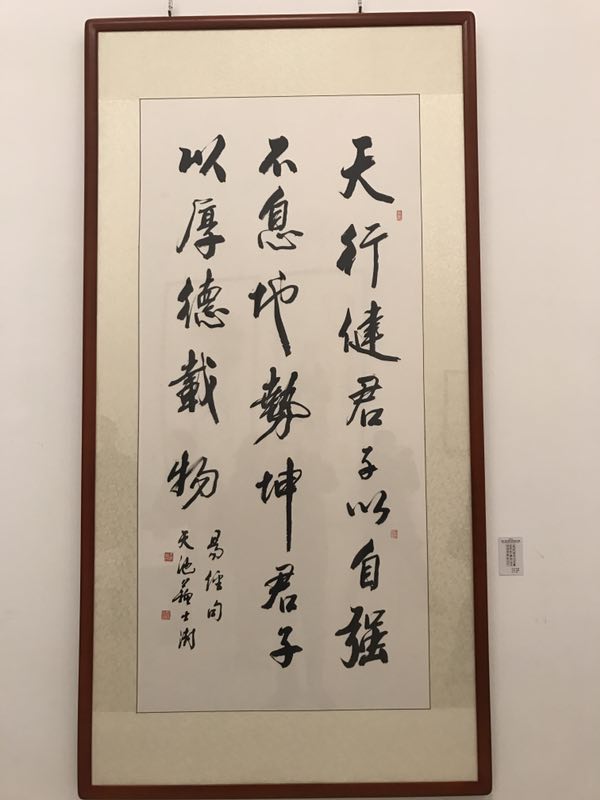 天行健君子以自强
不息地势坤君子
以厚德载物
易经句
天池苏士澍